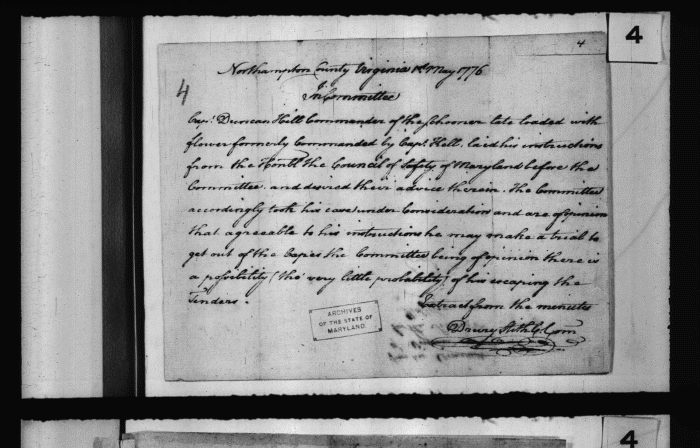 4
4
4
Northampton County Virginia 1st May 1776
In Committee
Capt. Duncan Hill Commander of the Schooner late loaded with
flower formerly Commanded by Capt. Kell, laid his instructions
from the Honble the Council of Safety of Maryland before the
Committee and desired their advice therein. The Committee
accordingly took his case under Consideration and are of opinion
that agreeable to his instructions he may make a trial to
get out of the Capes the Committee being of opinion there is
a possibility (tho' very little probability) of his escaping the
Tenders.
Extract from the minutes
Drury Stith C. Com
ARCHIVES
OF THE STATE OF
MARYLAND.
4